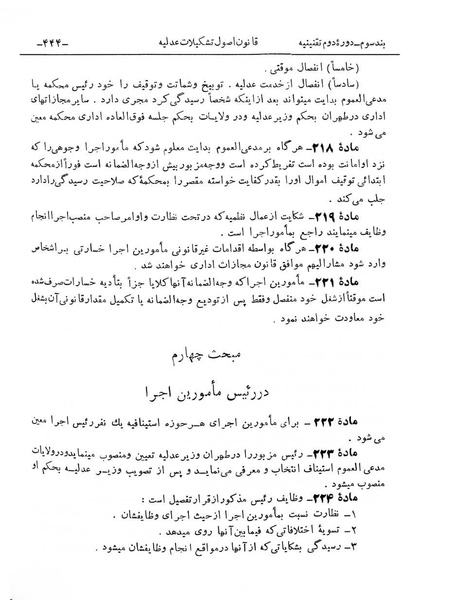 بند سوم ـ دورهٔ دوم تقنینیه قانون اصول تشکیلات عدلیه ـ۴۴۴ـ
(خامساً) انفصال موقتی .
(سادساً) انفصال از خدمت عدلیه . توبیخ و شماتت و توقیف را خود رئیس محکمه یا
مدعی‌العموم بدایت میتواند بعد از اینکه شخصاً رسیدگی کرد مجری دارد . سایر مجازاتهای
اداری در طهران بحکم وزیر عدلیه و در ولایات بحکم جلسه فوق‌العاده اداری محکمه معین
می شود .
مادهٔ ۲۱۸ـ هر گاه بر مدعی‌العموم بدایت معلوم شود که مأمور اجرا وجوهی را که
نزد او امانت بوده است تفریط کرده است و وجه مزبور بیش از وجه‌الضمانه است فوراً از محکمه
ابتدائی توقیف اموال او را بقدر کفایت خواسته مقصر را بمحکمهٔ که صلاحیت رسیدگی را دارد
جلب می کند .
مادهٔ ۲۱۹ـ شکایت از عمال نظمیه که در تحت نظارت و اوامر صاحب منصب اجرا انجام
وظایف مینمایند راجع بمأمور اجرا است .
مادهٔ ۲۲۰ـ هر گاه بواسطه اقدامات غیر قانونی مأمورین اجرا خسارتی بر اشخاص
وارد شود مشارالیهم موافق قانون مجازات اداری خواهند شد .
مادهٔ ۲۲۱ـ مأمورین اجرا که وجه‌الضمانه آنها کلا یا جزأ بتأدیه خسارات صرف شده
است موقتاً از شغل خود منفصل و فقط پس از تودیع وجه‌الضمانه یا تکمیل مقدار قانونی آن بشغل
خود معاودت خواهند نمود .
مبحث چهارم
در رئیس مأمورین اجرا
مادهٔ ۲۲۲ـ برای مأمورین اجرای هر حوزه استینافیه یك نفر رئیس اجرا معین
می شود .
مادهٔ ۲۲۳ـ رئیس مزبور را در طهران وزیر عدلیه تعیین و منصوب مینماید و در ولایات
مدعی‌العموم استیناف انتخاب و معرفی می‌نماید و پس از تصویب وزیر عدلیه بحکم او
منصوب میشود .
مادهٔ ۲۲۴ـ وظایف رئیس مذکور از قرار تفصیل است :
۱ـ نظارت نسبت بمأمورین اجرا از حیث اجرای وظایفشان .
۲ـ تسویهٔ اختلافاتی که فیمابین آنها روی میدهد .
۳ـ رسیدگی بشکایاتی که از آنها در مواقع انجام وظایفشان میشود .